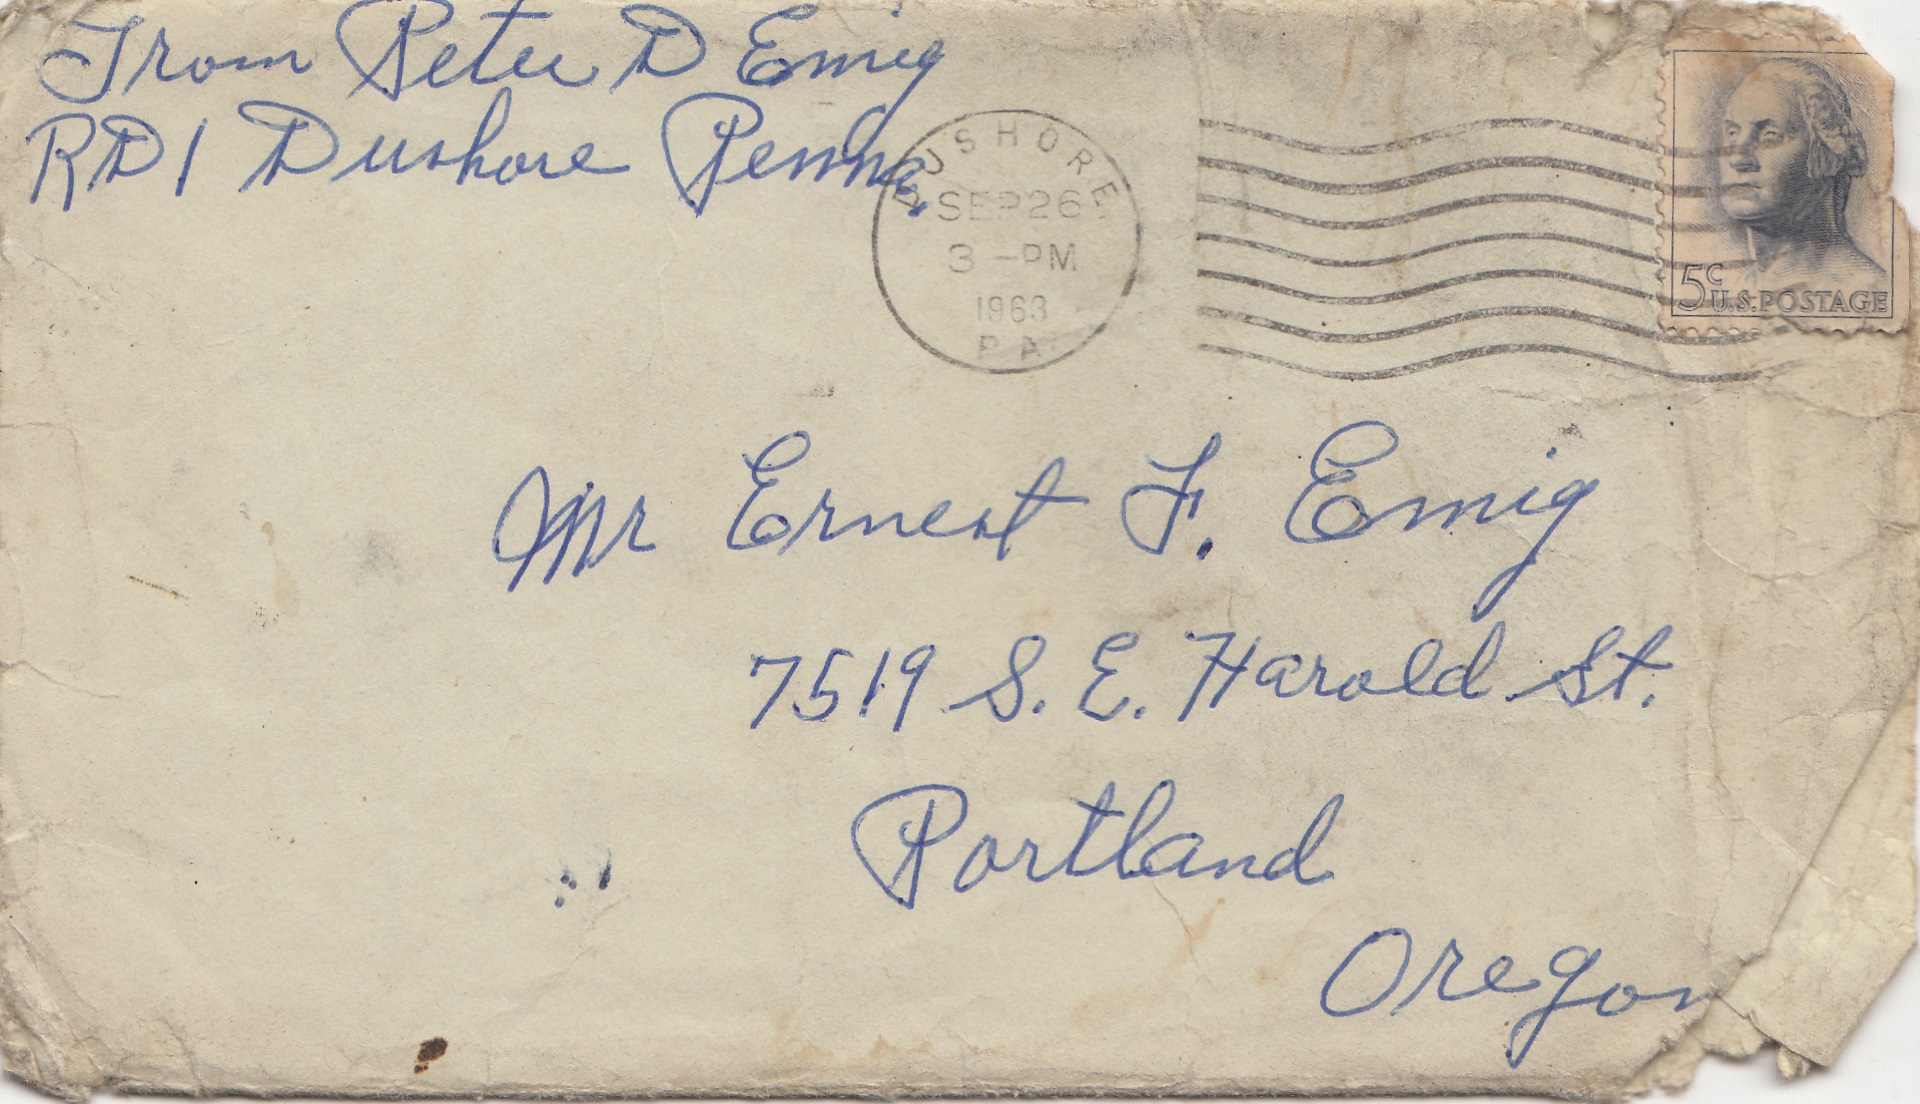 From Peter D Emig
RD1 Dushore Penna,
DUSHORE
SEP 26
3 -PM
1963
PA
5c U.S. POSTAGE
Mr Ernest F. Emig
7519 S. E. Harold St.
Portland
Oregon